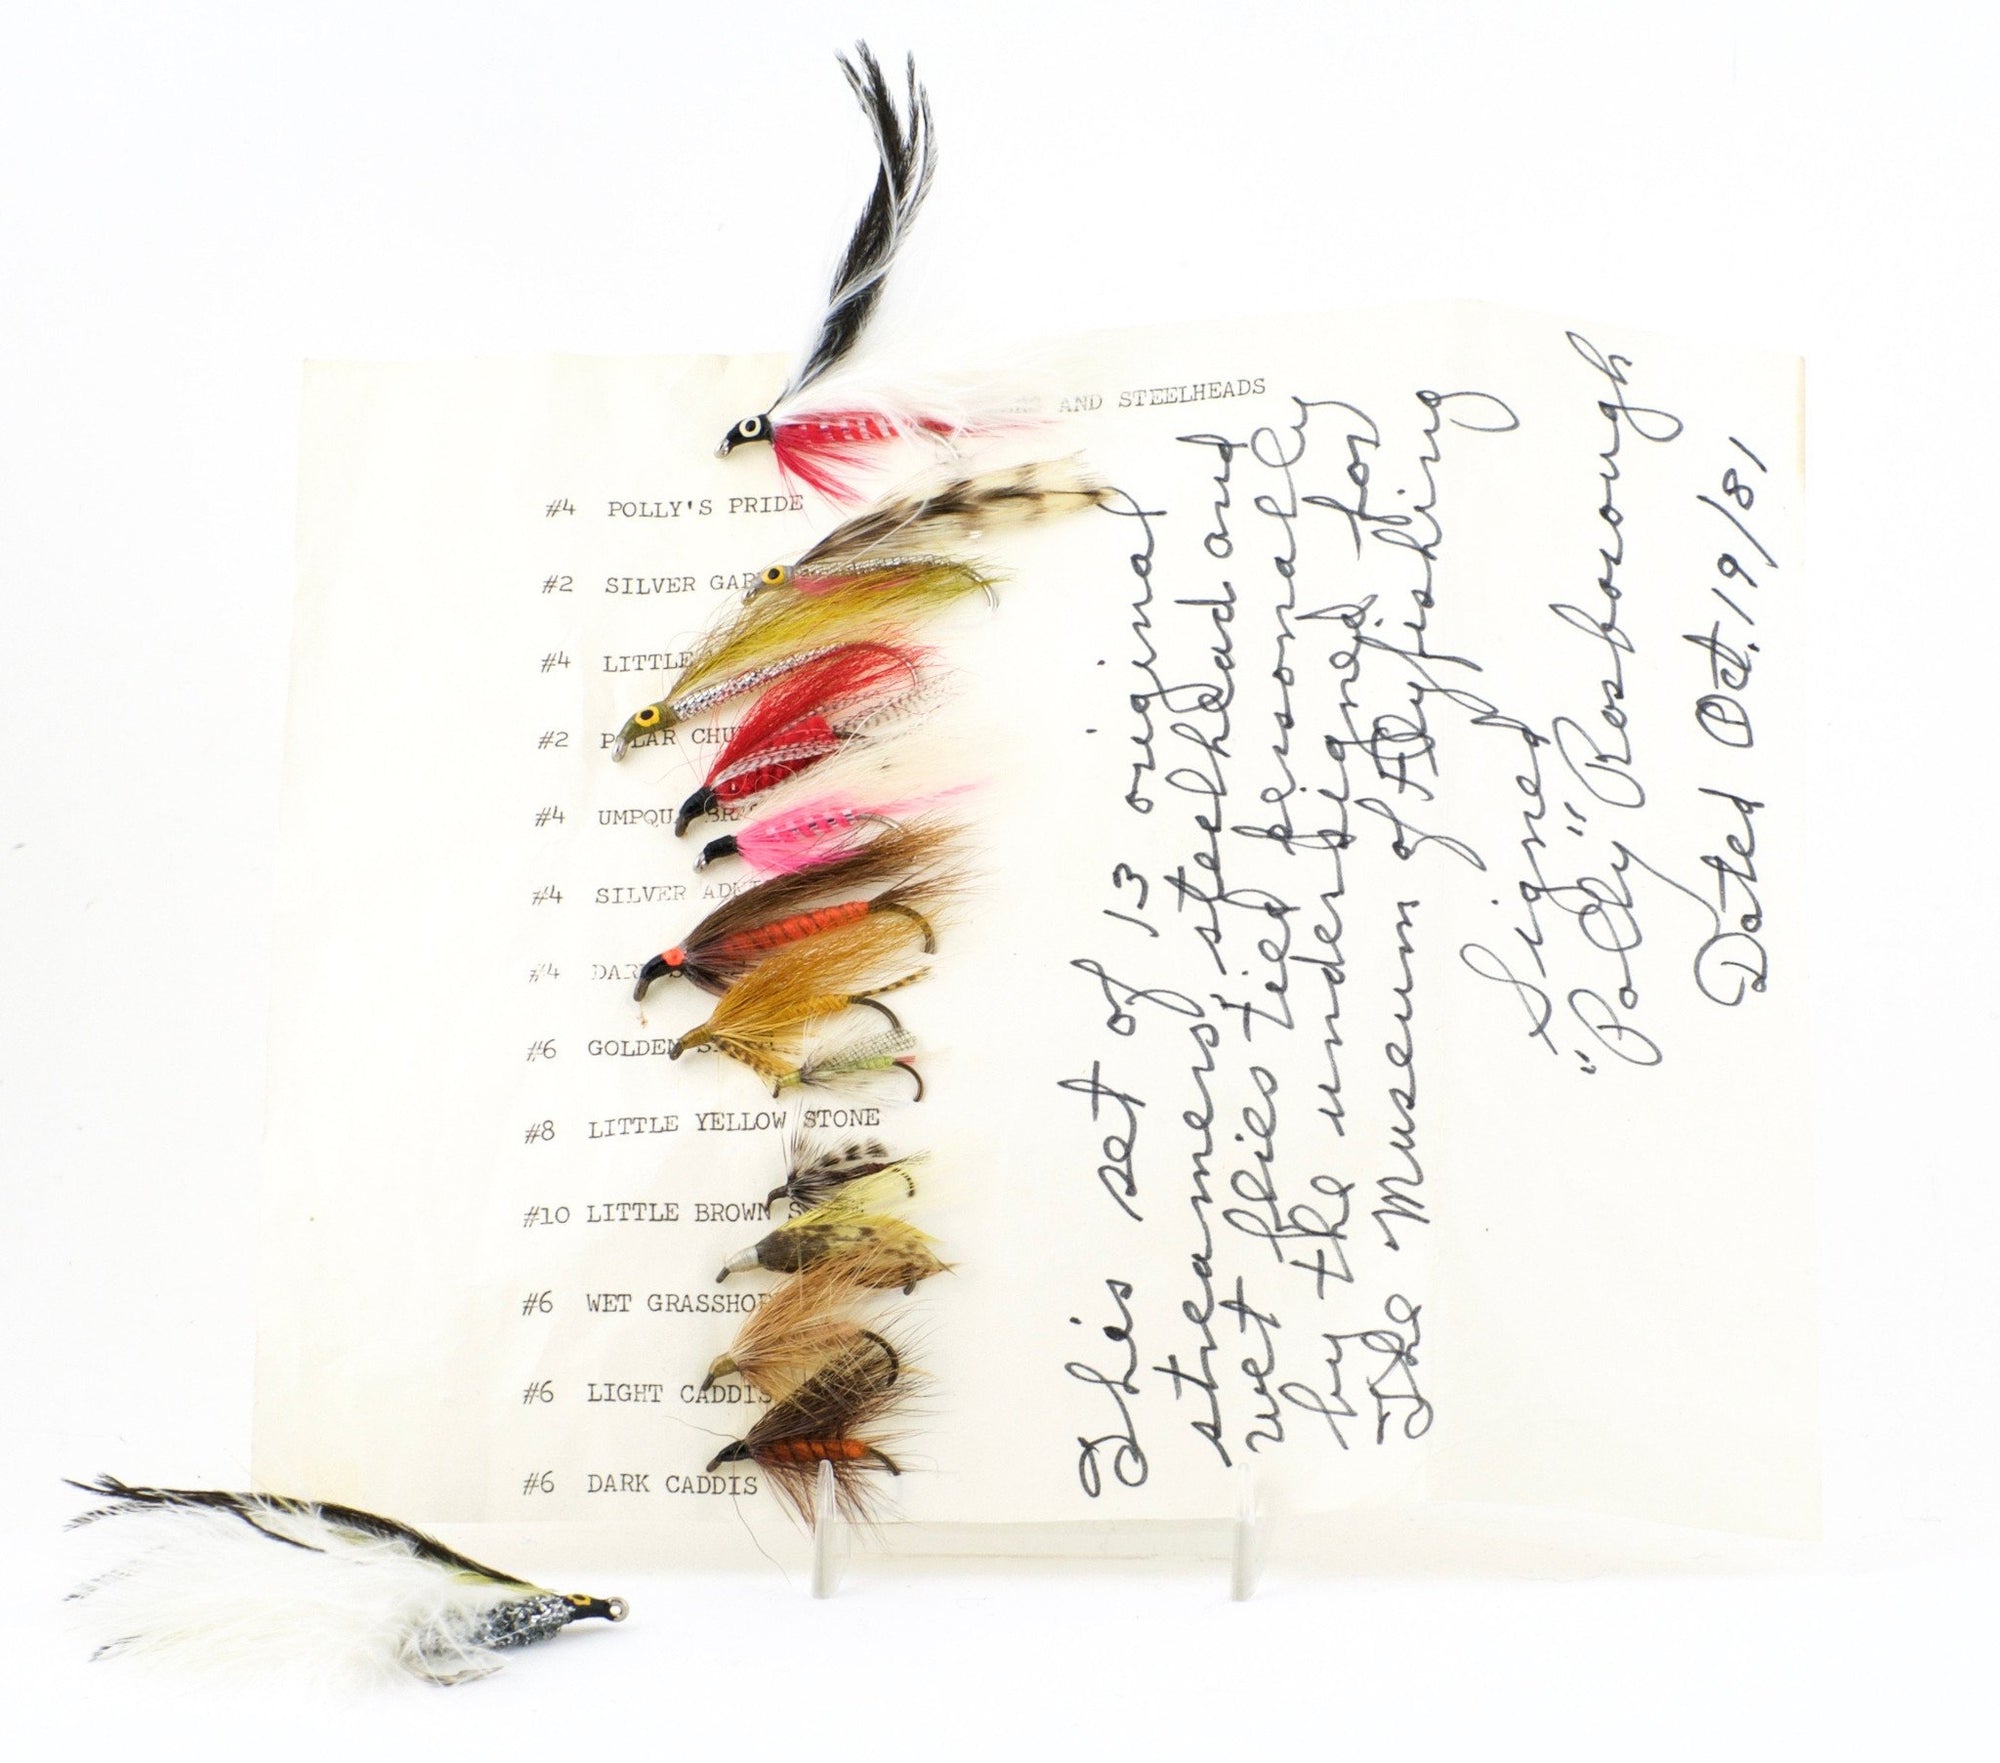 AND STEELHEADS
#4 POLLY'S PRIDE
#2 SILVER GAR
#4 LITTLE
#2 POLAR CHU
#4 UMPQUA
#4 SILVER
#4
#6 GOLDEN
#8 LITTLE YELLOW STONE
#10 LITTLE BROWN
#6 WET GRASSHOP
#6 LIGHT CADDIS
#6 DARK CADDIS
This set of 13 original
streamers, steelhead and
wet flies tied personally
by the undersigned for
The Museum of Flyfishing
Signed
"Polly" Rosborough
Dated Oct. 19/81